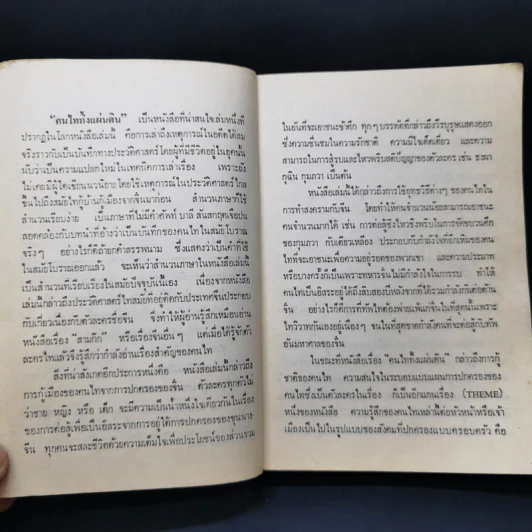 "คนไททิ้งแผ่นดิน" เป็นหนังสือที่น่าสนใจเล่มหนึ่งที่
ปรากฏในโลกหนังสือเล่มนี้ คือการเล่าถึงเหตุการณ์ในอดีตได้สม
จริงราวกับเป็นบันทึกทางประวัติศาสตร์ โดยผู้ที่มีชีวิตอยู่ในยุคนั้น
นับว่าเป็นความแปลกใหม่ในเทคนิคการเล่าเรื่อง เพราะยัง
ไม่เคยมีผู้ใดเขียนนวนิยาย โดยใช้เหตุการณ์ในประวัติศาสตร์ ไกล
ขึ้นไปถึงสมัยไทกู้บ้านกู้เมืองจากจีนมาก่อน สำนวนภาษาใช้
สำนวนเรียบง่าย เป็นภาษาที่ไม่มีคำศัพท์ บาลี สันสกฤตเจือปน
สอดคล้องกับบทนำที่อ้างว่าเป็นบันทึกของคนไทในสมัยโบราณ
จริง ๆ อย่างไรก็ดีถ้ายกคำสรรพนาม ซึ่งแสดงว่าเป็นคำที่ใช้
ในสมัยโบราณออกแล้ว จะเห็นว่าสำนวนภาษาในหนังสือเล่มนี้
เป็นสำนวนที่เรียบเรียงในสมัยปัจจุบันนี้เอง เนื่องจากหนังสือ
เล่มนี้กล่าวถึงประวัติศาสตร์ไทสมัยที่อยู่ติดกับประเทศจีนประกอบ
กับเกี่ยวเนื่องกับตัวละครชื่อจีน จึงทำให้ผู้อ่านรู้สึกเหมือนอ่าน
หนังสือเรื่อง "สามก๊ก" หรือเรื่องจีนอื่น ๆ แต่เมื่อได้รู้จักตัว
ละครไทแล้วจึงรู้สึกว่ากำลังอ่านเรื่องสำคัญของคนไท
สิ่งที่น่าสังเกตอีกประการหนึ่งคือ หนังสือเล่มนี้กล่าวถึง
การกู้เมืองของคนไทจากการปกครองของจีน ตัวละครทุกตัวไม่
ว่าชาย หญิง หรือ เด็ก จะมีความเป็นน้ำหนึ่งใจเดียวกันในเรื่อง
ของการต่อสู้เพื่อเป็นอิสระจากการอยู่ใต้การปกครองของขุนนาง
จีน ทุกคนจะสละชีวิตด้วยความเต็มใจเพื่อประโยชน์ของส่วนรวม
ในอันที่จะเอาชนะข้าศึก ทุก ๆ บรรทัดที่กล่าวถึงวีรบุรุษแสดงออก
ซึ่งความชื่นชมในความรักชาติ ความมีใจเด็ดเดี่ยว และความ
สามารถในการสู้รบและไหวพริบสติปัญญาของตัวละคร เช่น ธงผา
กุฉิน กุมภวา เป็นต้น
หนังสือเล่มนี้ได้กล่าวถึงการใช้ยุทธวิธีต่าง ๆ ของคนไทใน
การทำสงครามกับจีน โดยทำให้คนจำนวนน้อยสามารถเอาชนะ
คนจำนวนมากได้ เช่น การต่อสู้ชิงไหวชิงพริบในการจัดขบวนศึก
ของกุมภวา กับเตียวเหลียง ประกอบกับกำลังใจอันฮึกเหิมของคน
ไทที่จะเอาชนะเพื่อความอยู่รอดของพวกเขา และความประมาท
หรือบางครั้งก็เป็นเพราะทหารจีนไม่มีกำลังใจในการรบ ทำให้
คนไทเป็นอิสระอยู่ได้ถึงสองสิบปีหลังจากที่ได้รวมกำลังกันต่อต้าน
จีน อย่างไรก็ดีการที่ทัพไทต้องพ่ายแพ้แก่จีนในที่สุดนั้นเพราะ
ไทวิวาทกันเองอยู่เนือง ๆ จนในที่สุดขาดกำลังคนที่จะต่อสู้กับทัพ
อันมหาศาลของจีน
ในขณะที่หนังสือเรื่อง "คนไททิ้งแผ่นดิน" กล่าวถึงการกู้
ชาติของคนไท ความสนใจในระบอบแบบแผนการปกครองของ
คนไทซึ่งเป็นตัวละครในเรื่อง ก็เป็นอีกแกนเรื่อง (THEME)
หนึ่งของหนังสือ ความรู้สึกของคนไทเหล่านี้ต่อหัวหน้าหรือเจ้า
เมืองเป็นไปในรูปแบบของสังคมที่ปกครองแบบครอบครัว คือ